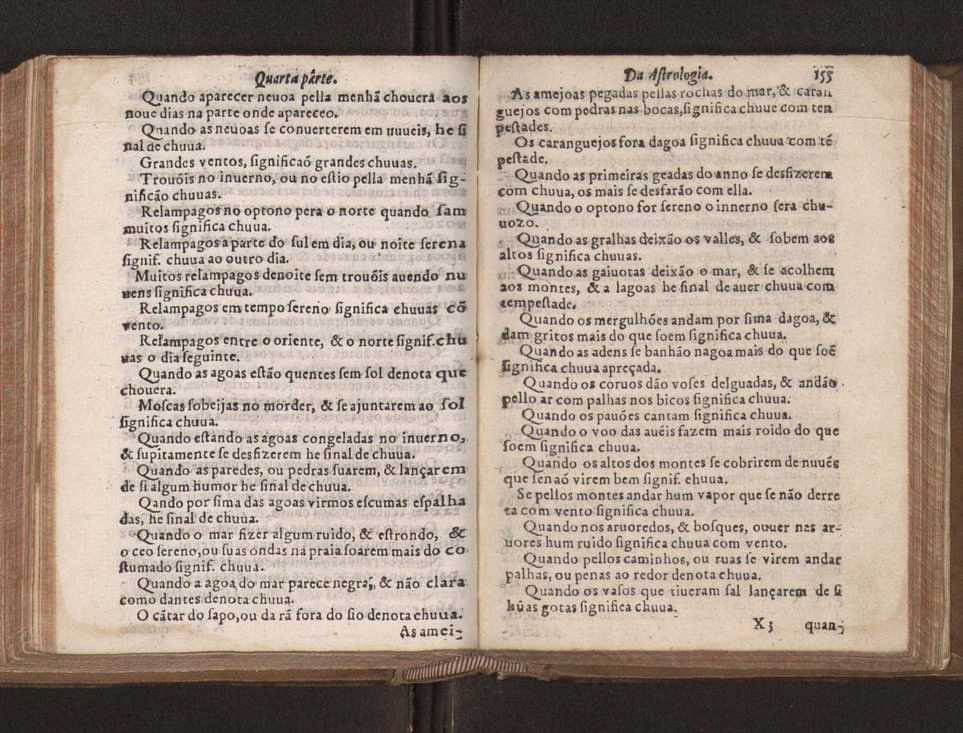 Quarta parte.
Quando aparecer neuoa pella menhã chouerà aos
noue dias na parte onde apareceo.
Quando as neuoas se conuerterem em nuueis, he si
nal de chuua.
Grandes ventos, significaõ grandes chuuas.
Trouóis no inuerno, ou no estio pella menhã sig-
nificão chuuas.
Relampagos no optono pera o norte quando sam
muitos significa chuua.
Relampagos a parte do sul em dia, ou noite serena
signif. chuua ao outro dia.
Muitos relampagos denoite sem trouóis auendo nu
uens significa chuua.
Relampagos em tempo sereno significa chuuas cõ
vento.
Relampagos entre o oriente, & o norte signif. chu
uas o dia seguinte.
Quando as agoas estão quentes sem sol denota que
chouera.
Moscas sobeijas no morder, & se ajuntarem ao sol
significa chuua.
Quando estando as agoas congeladas no inuerno,
& supitamente se desfizerem he sinal de chuua.
Quando as paredes, ou pedras suarem, & lançarem
de si algum humor he sinal de chuua.
Qando por sima das agoas virmos escumas espalha
das, he sinal de chuua.
Quando o mar fizer algum ruido, & estrondo, &
o ceo sereno, ou suas ondas na praia soarem mais do co
stumado signif. chuua.
Quando a agoa do mar parece negra, & não clara
como dantes denota chuua.
O cãtar do sapo, ou da rã fora do sio denota chuua.
As amei-
Da Astrologia. 155
As amejoas pegadas pellas rochas do mar, & caran
guejos com pedras nas bocas, significa chuue com tem
pestades.
Os caranguejos fora dagoa significa chuua com tê
pestade.
Quando as primeiras geadas do anno se desfizerem
com chuua, os mais se desfarão com ella.
Quando o optono for sereno o innerno sera chu-
uozo.
Quando as gralhas deixão os valles, & sobem aos
altos significa chuuas.
Quando as gaiuotas deixão o mar, & se acolhem
aos montes, & a lagoas he sinal de auer chuua com
tempestade.
Quando os mergulhões andam por sima dagoa, &
dam gritos mais do que soem significa chuua.
Quando as adens se banhão nagoa mais do que soẽ
significa chuua apreçada.
Quando os coruos dão voses delguadas, & andão
pello ar com palhas nos bicos significa chuua.
Quando os pauões cantam significa chuua.
Quando o voo das auéis fazem mais roido do que
soem significa chuua.
Quando os altos dos montes se cobrirem de nuuẽs
que senaõ virem bem signif. chuua.
Se pellos montes andar hum vapor que se não derre
ta com vento significa chuua.
Quando nos aruoredos, & bosques, ouuer nas ar-
uores hum ruido significa chuua com vento.
Quando pellos caminhos, ou ruas se virem andar
palhas, ou penas ao redor denota chuua.
Quando os vasos que tiueram sal lançarem de si
hũas gotas significa chuua.
X3 quan-